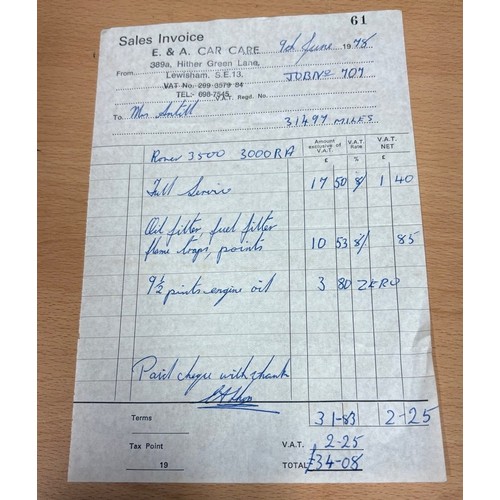 61
Sales Invoice
E. & A. CAR CARE
9th June 1978
389a, Hither Green Lane,
From
Lewisham, S.E.13.
JOB No 707
VAT No. 209 3579 84
TEL:- 698-7545
V.A.T. Regd. No.
To Mrs
31497 MILES
Amount exclusive of V.A.T. V.A.T. Rate V.A.T. NET
£ % £
Rover 3500 3000RA
Full Service 17 50 8 1 40
Oil filter, fuel filter
flame traps, points 10 53 8 85
9½ pints engine oil 3 80 ZERO
Paid cheque with thanks
Terms 31-83 2-25
Tax Point V.A.T. 2-25
19 TOTAL £34-08